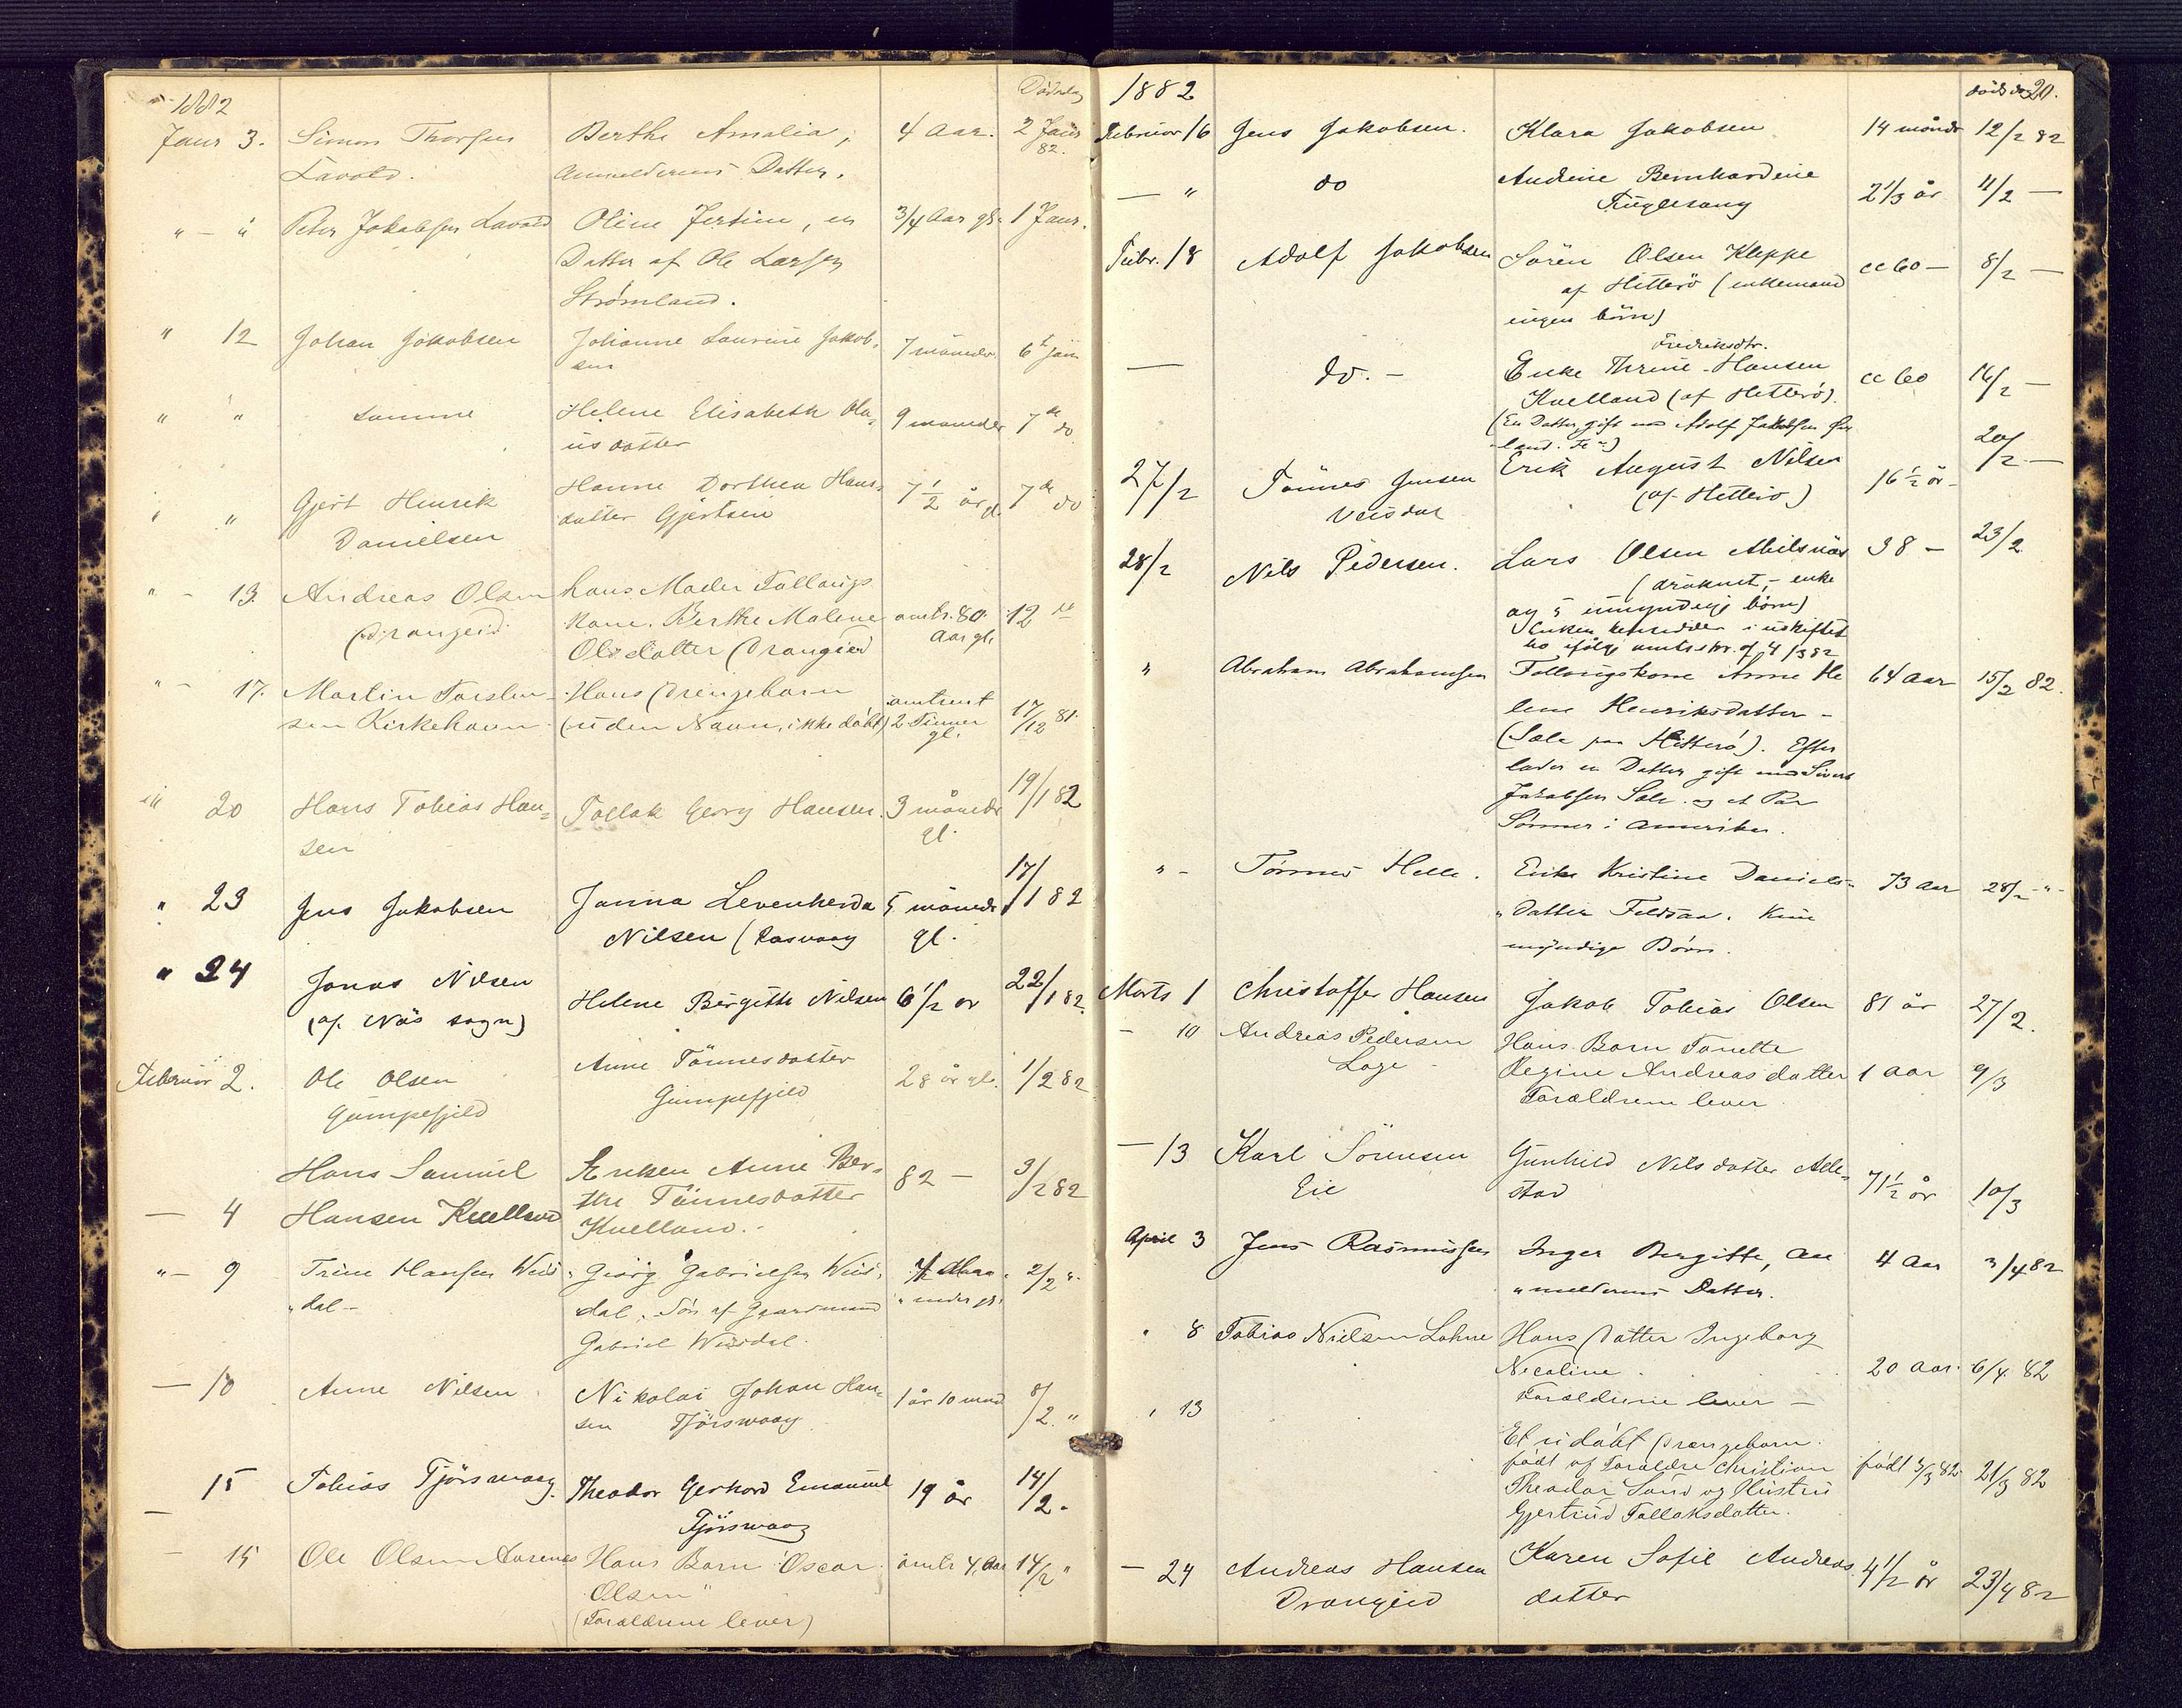 1882
Dødsdag
Janr 3. Simon Thorsen Berthe Amalia, 4 Aar. 2 Janr
Lavold. Anmelderens Datter. 82.
" - " Peter Jakobsen Lavold Oline Jertine, en 3/4 Aar gl. 1 Janr.
Datter af Ole Larsen
Strømland.
" 12 Johan Jakobsen Johanne Laurine Jakob- 7 måneder 6te jan
sen
" " samme Helene Elisabeth Ola- 9 maaneder 7de do
us datter
" " Gjert Henrik Hanne Dorthea Hans- 7 1/2 år gl. 7de do
Danielsen datter Gjertsen
" - 13. Andreas Olsen hans Moder Fallongs
Drangeid kone. Berthe Malene omtr. 80 12te
Olsdatter Drangeid Aar gl.
" - 17. Martin Torsten- Hans Drengebarn omtrent 17/12 81.
sen Kirkehavn (uden Navn, ikke døbt) 2 Timer
gl.
20 Hans Tobias Han- Tollak Georg Hansen. 3 måneder 19/1 82
sen gl.
" 23 Jens Jakobsen Janna Levenherda 5 måneder 17/1 82
Nilsen (Rasvaag gl.
" 24 Jonas Nilsen Helene Bergitte Nilsen 6 1/2 år 22/1 82.
(af Näs sogn)
Februar 2. Ole Olsen Anne Tönnesdatter 28 år gl. 1/2 82
Gumpefjeld Gumpefjeld
Hans Samuel Enken Anne Ber- 82 - 3/2 82
— 4 Hansen Kvelland the Tönnesdatter
Kvelland.
" - 9 Trine Hansen Weis- Georg Gabrielsen Weis- 2/2 "
"dal - dal, Søn af Gaardmand
Gabriel Weisdal.
— 10 Anne Nilsen Nikolai Johan Han- 1 år 10 mnd 8/2. "
sen Tjörswaag
— 15 Tobias Tjörswaag. Theodor Gerhard Emanuel 19 år 14/2.
Tjörswaag
— 15 Ole Olsen Aarenes Hans Barn "Oscar omtr 4, Aar 14/2 "
Olsen"
(Foraldrene lever)
1882 døds dag 20.
Februar 16 Jens Jakobsen. Klara Jakobsen 14 månder 12/2 82
— " do Andrine Bernhardine 2 1/3 år 11/2 —
Fuglesang
Febr. 18 Adolf Jakobsen Sören Olsen Kleppe cc 60 — 8/2 —
af Hitterö (enkemand
ingen börn)
Fredriksdtr.
— do. - Enke Thrine Hansen cc 60 16/2 —
Kvelland (af Hitterö).
(En Datter, gift med Adolf Jakobsen
27/2 Tönnes Jensen Erik August Nilsen 16 1/2 år - 20/2 —
Veisdal (af Hitterö)
28/2 Nils Pedersen. Lars Olsen 38 — 23/2
(druknet, - enke
og 5 umyndige börn)
Enken hensidder i uskiftet
bo ifölge amtsskr. af 4/3 82
" Abraham Abrahamsen Fallongskone Anne He 64 Aar 15/2 82.
lene Henriksdatter -
(Sæle paa Hitterø). Efter
lader en Datter gift med Sivert
Jakobsen Sæle og et Par
Sønner i Amerika.
" - Tønnes Helle. Enke Kristine Daniels- 73 Aar 28/2 - " -
"datter Feldsaa. Kun
myndige Børn.
Marts 1 Christoffer Hansen Jakob Tobias Olsen 81 år 27/2.
- 10 Andreas Pedersen Hans Barn Tonette
Loge - Regine Andreasdatter 1 Aar 9/3
Foraldrene lever
— 13 Karl Sörensen Gunhild Nilsdatter 71 1/2 år 10/3
Eie stad
April 3 Jens Rasmussen Inger Bergitte, An 4 Aar 3/4 82
"melderens Datter.
" 8 Tobias Nielsen Lohne Hans Datter Ingeborg
Nicoline. 20 Aar. 6/4 82
Foraldrene lever —
" 13
Et udøbt Drengebarn.
født af Foraldre Christian født 3/3 82. 21/3 82
Theodor Sand og Hustru
Gjertrud Tollaksdatter.
— 24 Andreas Hansen Karen Sofie Andreas 4 1/2 år 23/4 82
Drangeid datter